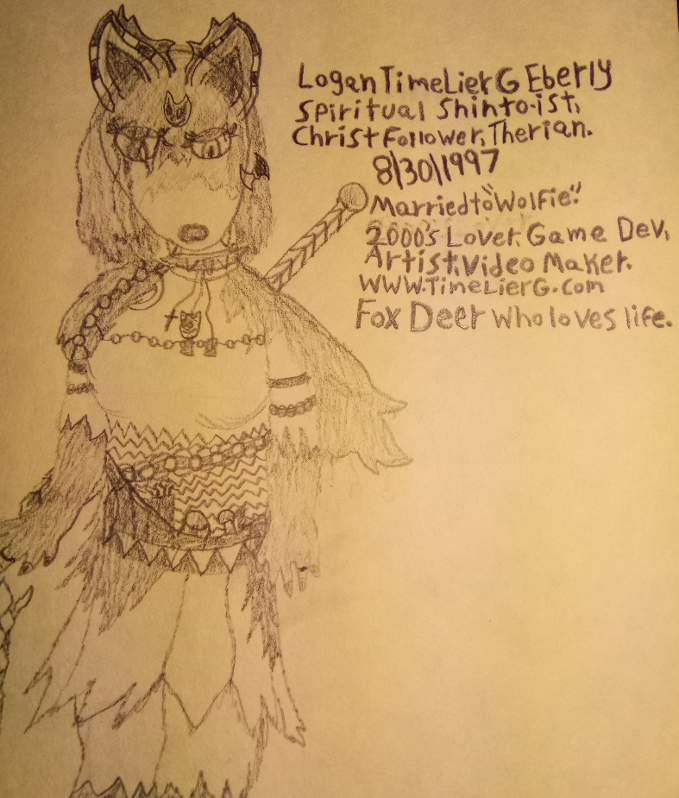 Logan TimeLier G Eberly
Spiritual Shinto-ist,
Christ Follower, Therian.
8/30/1997
Married to "Wolfie".
2000's Lover, Game Dev,
Artist, Video Maker.
WWW.TimeLierG.com
Fox Deer who loves life.